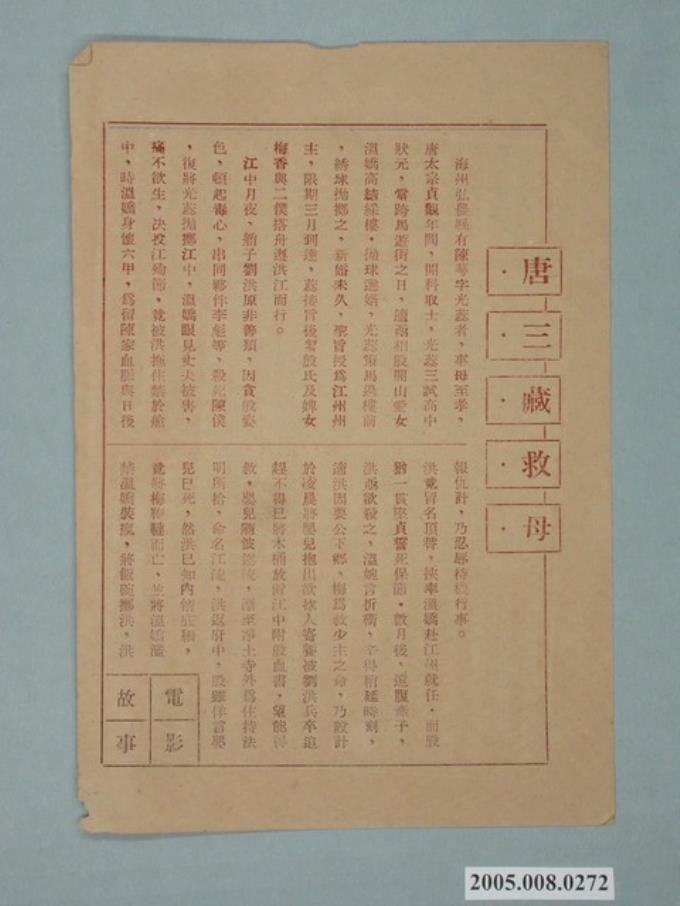 唐三藏救母
海州弘農縣有陳萼字光蕊者，事母至孝，
唐太宗貞觀年間，開科取士，光蕊三試高中
狀元，當跨馬遊街之日，適丞相殷開山愛女
溫嬌高結綵樓，拋球選婿，光蕊策馬過樓前
，綉球拋擲之，新婚未久，聖旨授爲江州州
主，限期三月到達，蕊接旨後挈殷氏及婢女
梅香與二僕搭舟遵洪江而行。
江中月夜，艄子劉洪原非善類，因貪殷姿
色，頓起毒心，串同夥伴李彪等，殺死陳僕
，復將光蕊拋擲江中，溫嬌眼見丈夫被害，
痛不欲生，决投江殉節，竟被洪拖住禁於艙
中，時溫嬌身懷六甲，爲留陳家血脈與日後
報仇計，乃忍辱待機行事。
洪竟冒名頂替，挾牽溫嬌赴江州就任，而殷
猶一貫堅貞誓死保節，數月後，遺腹產子，
洪亟欲殺之，溫婉言折衝，幸得稍延時刻，
適洪因要公下鄉，梅爲救少主之命，乃設計
於凌晨將嬰兒抱出欲找人寄養被劉洪兵卒追
趕不得已將木桶放嬰江中附殷血書，望能得
救，嬰兒隨波逐流，漂至淨土寺外爲住持法
明所拾，命名江流，洪返府中，殷雖佯言嬰
兒已死，然洪已知內情在胸，
竟將梅鞭韃而亡，並將溫嬌濫
禁溫嬌裝瘋，將飯碗擲洪，洪
電影
故事
2005.008.0272